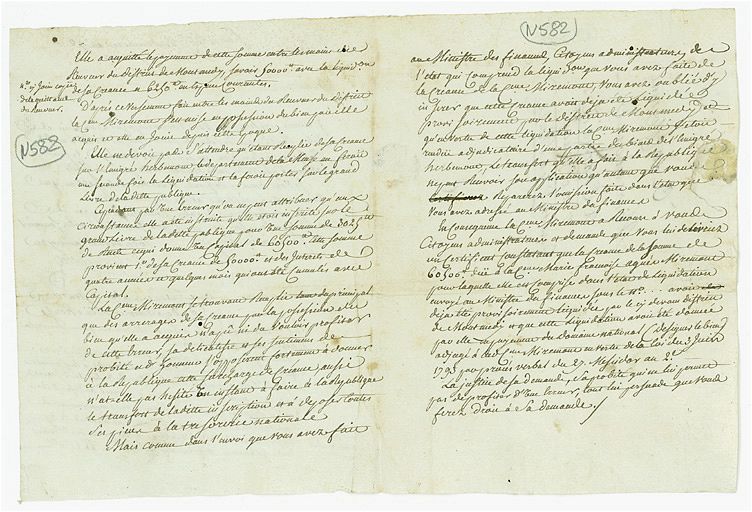 N582
Elle a acquitté le payement de cette somme entre les mains du
Receveur du District de Monsmedy, savoir 50000# avec la liquidon
de sa Creance et 6250# en especes Courantes.
No. 9 Join copie
de la quittance
du Receveur.
N582
D'après ce versement fait entre les mains du Receveur du District
la Cene Miremont fut mise en possession du bien par elle
acquis et elle en Jouie depuis cette Epoque.
Elle ne devoit pas s'attendre qu'etant Remplie de sa Creance
sur l'Emigré herbemont, le departement de la Meuse en feroit
une seconde fois la liquidation et la feroit porter sur le grand
Livre de la dette publique.
Cependant par une Erreur qu'on ne peut attribuer qu'aux
Circonstances elle a été instruite qu'elle etoit inscrite sur le
grand Livre de la dette publique pour une somme de 3025#
de Rente ce qui donne un Capital de 60500# cette somme
provient 1° de sa Creance de 50000# et des Interets de
quatre années et quelques mois qui ont été Cumulés avec
Capital.
La Cene Miremont se trouvant Remplie tant du principal
que des arrerages de sa Creance par la possession du
bien qu'elle a acquis n'a jamais dû vouloir profiter
de cette Erreur, sa délicatesse et ses sentimens de
probité et d'honneur s'opposent fortement à donner
à la Republique cette surcharge de Creance aussi
n'at-elle pas hesité un instant à faire à la République
le transport de la dette inscription et à déposer toutes
ses pieces à la tresorerie nationale
Mais comme dans l'envoi que vous avez fait
au Ministre des finances Citoyens administrateurs, de
l'etat qui comprend la liquidon que vous avez faite de
la Creance de la Cene Miremont, vous avez oublié d'y
inserer que cette Creance avoit deja eté liquidée
provisoirement par le District de Monsmedy, et
qu'en vertu de cette liquidation la Cene Miremont s'etoit
rendue adjudicataire d'une partie des biens de l'Emigré
herbemont, le transport qu'elle a fait à la République
ne peut recevoir son application qu'autant que vous
reparerez l'omission faite dans l'etat que
vous avez adressé au Ministre des finances
En consequence la Cene Miremont a Recours à vous
Citoyens administrateurs et demande que vous lui delivriez
un Certificat constatant que la Creance de la somme de
60500# due à la Cene Marie françoise agnès Miremont
pour laquelle elle est comprise dans l'etat de liquidation
envoyé au Ministre des finances sous le No. .... avoit
deja eté provisoirement liquidée par le ci devant district
de Montmedy et que cette liquidation avoit eté donnée
par elle en payement du domaine national (designer le bien)
adjugé à la de Cene Miremont en vertu de la loi du 3 Juin
1793 par procès verbal du 27 Messidor an 2e
La justice de sa demande, la probité qui ne lui permet
pas de profiter d'une Erreur, tout lui persuade que vous
ferez droit à sa demande